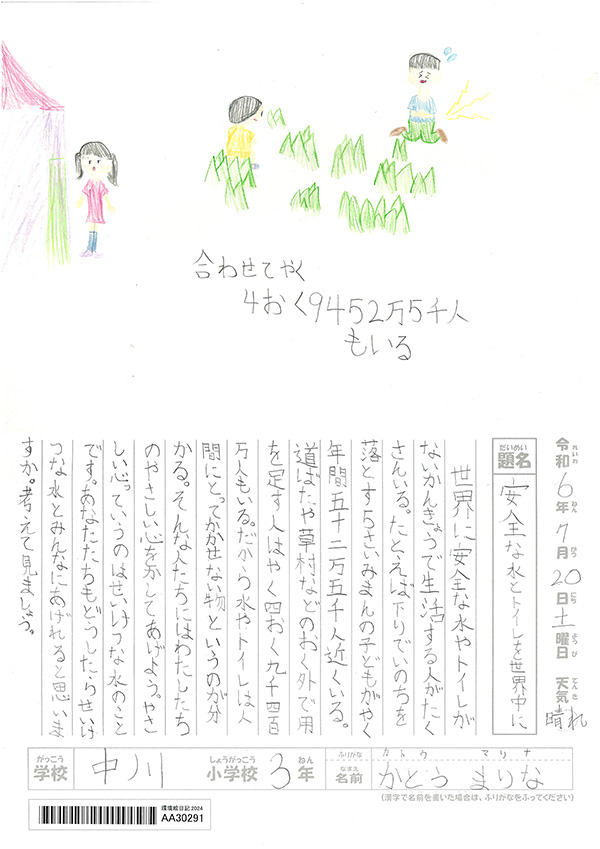 合わせてやく
4おく9452万5千人
もいる
令和6年7月20日土曜日 天気晴れ
れいわ ねん がつ にち ようび てんき
だいめい
題名
安全な水とトイレを世界中に
世界に安全な水やトイレが
ないかんきょうで生活する人がたく
さんいる。たとえば下りでいのちを
落とす5さいみまんの子どもがやく
年間五十二万五千人近くいる。
道ばたや草村などのおく外で用
を足す人はやく四おく九千四百
万人もいる。だから水やトイレは人
間にとってかかせない物というのが分
かる。そんな人たちにはわたしたち
のやさしい心をかしてあげよう。やさ
しい心っていうのはせいけつな水のこと
です。あなたたちもどうしたらせいけ
つな水とみんなにあげれると思いま
すか。考えて見ましょう。
がっこう しょうがっこう ねん
学校 中川 小学校 3年
ふりがな カトウ マリナ
なまえ
名前 かとう まりな
(漢字で名前を書いた場合は、ふりがなをふってください)
環境絵日記2024
AA30291